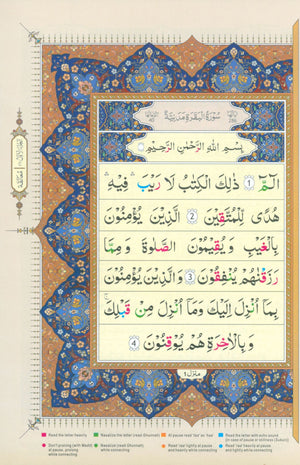 سُوْرَةُ الْبَقَرَةِ مَدَنِيَّةٌ
بِسْمِ اللّٰهِ الرَّحْمٰنِ الرَّحِيْمِ
الٓمّٓ ﴿1﴾ ذٰلِكَ الْكِتٰبُ لَا رَيْبَ ۛ فِيْهِ ۛ
هُدًى لِّلْمُتَّقِيْنَ ﴿2﴾ الَّذِيْنَ يُؤْمِنُوْنَ
بِالْغَيْبِ وَ يُقِيْمُوْنَ الصَّلٰوةَ وَ مِمَّا
رَزَقْنٰهُمْ يُنْفِقُوْنَ ﴿3﴾ وَالَّذِيْنَ يُؤْمِنُوْنَ
بِمَا اُنْزِلَ اِلَيْكَ وَمَا اُنْزِلَ مِنْ قَبْلِكَ ۚ
وَ بِالْاٰخِرَةِ هُمْ يُوْقِنُوْنَ ﴿4﴾
منزل ١
Read the letter heavily
Nasalize the letter (read Ghunnah)
At pause read 'taa' as 'haa'
Read the letter with echo sound (in case of pause or stillness (Sukun))
Don't prolong (with Madd) at pause, prolong while connecting
Nasalize (read Ghunnah) while connecting
Read 'raa' lightly at pause and heavily while connecting
Read 'raa' heavily at pause and lightly while connecting